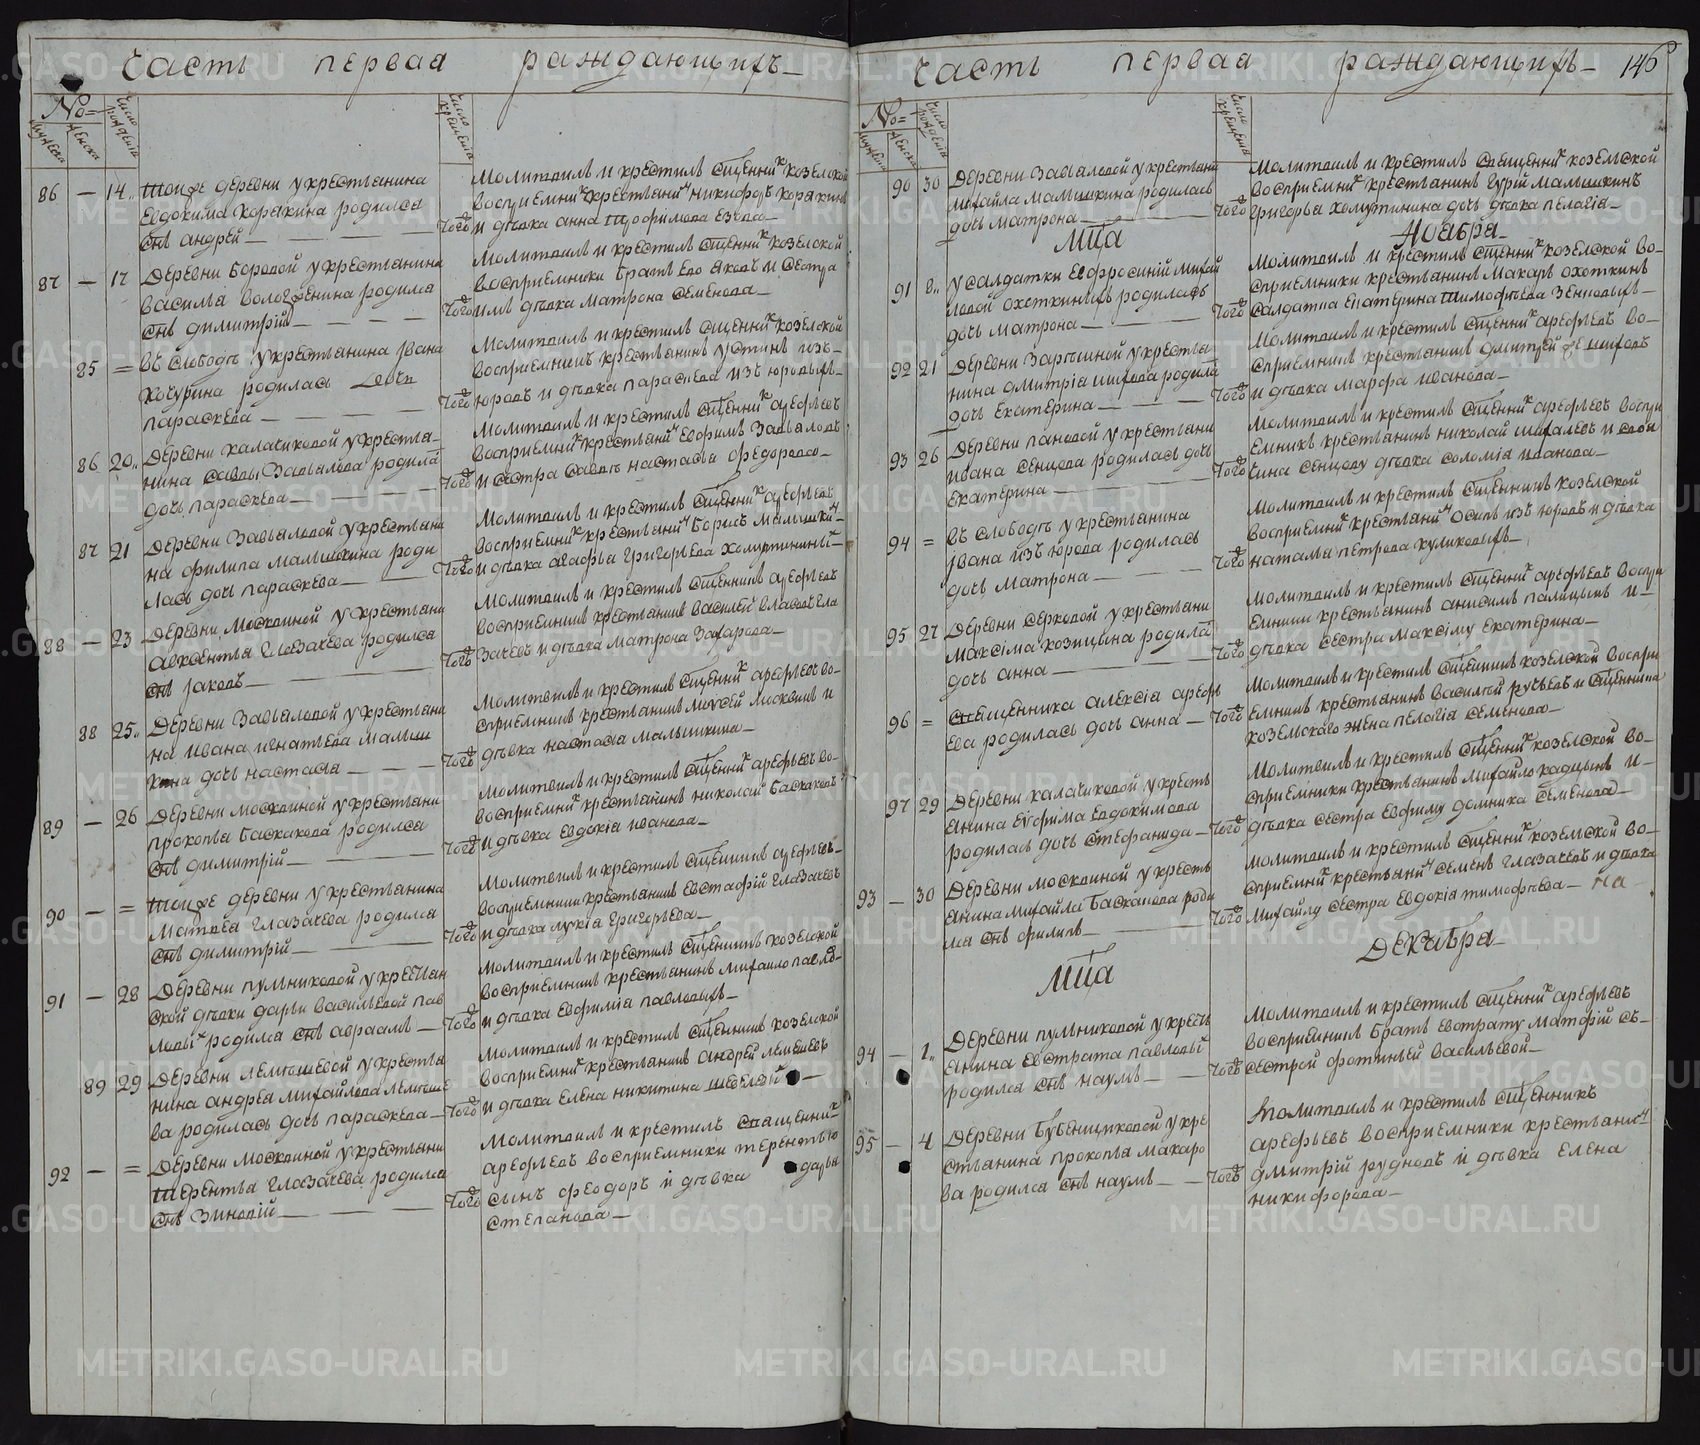 Часть первая раждающихъ
№
мужеска
женска
число рождения
число крещения
86 — 14 Тойже деревни у крестьянина
Евдокима Корякина родился
снъ андрей
того
Молитвилъ и крестилъ сщенникъ козелской
восприемникъ крестьянинъ никифоръ корякинъ
и дѣвка анна трофимова
87 — 17 Деревни боровой у крестьянина
василья родился
снъ димитрій
того
Молитвилъ и крестилъ сщенникъ козелской
восприемники братъ его яковъ и сестра
имъ дѣвка матрона семенова
85 = въ слободѣ у крестьянина івана
кочурина родилась дочь
параскева
того
Молитвилъ и крестилъ сщенникъ козелской
восприемникъ крестьянинъ устинъ изъ
юровъ и дѣвка параскева изъ юровыхъ
86 20 Деревни калачиковой у крестья-
нина саввы Завьялова родила
дочь параскева
того
Молитвилъ и крестилъ сщенникъ арефьевъ
восприемникъ крестьянинъ евфимъ Завьяловъ
и сестра саввѣ настасья федорова
87 21 Деревни Завьяловой у крестьяни
на филипа малышкина роди
лась дочь параскева
того
Молитвилъ и крестилъ сщенникъ арефьевъ
восприемникъ крестьянинъ борисъ малышкинъ
и дѣвка агафья григорьева хомутининыхъ
88 — 23 Деревни Москвиной у крестьяни
авксентья глазачева родился
снъ іаковъ
того
Молитвилъ и крестилъ сщенникъ арефьевъ
восприемникъ крестьянинъ василей власовъ гла
зачевъ и дѣвка матрона Захарова
88 25 Деревни Завьяловой у крестьяни
на ивана игнатьева малыш
кина дочь настасья
того
Молитвилъ и крестилъ сщенникъ арефьевъ во-
сприемникъ крестьянинъ моисей москвинъ и
дѣвка настасья малышкина
89 — 26 Деревни москвиной у крестьяни
прокопья баскакова родился
снъ димитрій
того
Молитвилъ и крестилъ сщенникъ арефьевъ во-
восприемникъ крестьянинъ николай баскаковъ
и дѣвка евдокія иванова
90 — = Тойже деревни у крестьянина
матвея глазачева родился
снъ димитрій
того
Молитвилъ и крестилъ сщенникъ арефьевъ
восприемники крестьянинъ евстафій глазачевъ
и дѣвка лукія григорьева
91 — 28 Деревни пульниковой у крестьян
ской дѣвки дарьи васильевой пав
ловыхъ родился снъ авраамъ
того
Молитвилъ и крестилъ сщенникъ козелской
восприемникъ крестьянинъ михайло павло-
и дѣвка евфимія павловыхъ
89 29 Деревни лемышевой у крестья
нина андрея михайлова лемыше
ва родилась дочь параскева
того
Молитвилъ и крестилъ сщенникъ козелской
восприемникъ крестьянинъ андрей лемышевъ
и дѣвка елена никитина
92 — = Деревни москвиной у крестьяни
терентья глазачева родился
снъ Зиновій
того
Молитвилъ и крестилъ сващенникъ
арефьевъ восприемники терентью
сынъ феодоръ и дѣвка дарья
степанова
Часть первая раждающихъ 146
№
мужеска
женска
число рождения
число крещения
90 30 Деревни Завьяловой у крестьяни
михайла малышкина родилась
дочь матрона
того
Молитвилъ и крестилъ сващенникъ козелской
восприемникъ крестьянинъ гурій малышкинъ
григорья хомутинина дочь дѣвка пелагія
Мца Ноабря
91 8 у салдатки евфросиніи михай
ловой охоткиныхъ родилась
дочь матрона
того
Молитвилъ и крестилъ сщенникъ козелской во-
сприемники крестьянинъ макаръ охоткинъ
салдатка екатерина тимофеева Зенковыхъ
92 21 Деревни Зарышной у крестья
нина дмитрія родила
дочь екатерина
того
Молитвилъ и крестилъ сщенникъ арефьевъ во-
сприемникъ крестьянинъ дмитрей
и дѣвка марфа иванова
93 26 Деревни пановой у крестьяни
ивана сенцова родилась дочь
екатерина
того
Молитвилъ и крестилъ сщенникъ арефьевъ воспри
емникъ крестьянинъ николай михалевъ и свои
чина сенцову дѣвка соломія иванова
94 = въ слободѣ у крестьянина
івана изъ юрова родилась
дочь матрона
того
Молитвилъ и крестилъ сщенникъ козелской
восприемникъ крестьянинъ осипъ изъ юровъ и дѣвка
наталья петрова куликовыхъ
95 27 Деревни серковой у крестьяни
максіма козицина родила
дочь анна
того
Молитвилъ и крестилъ сщенникъ арефьевъ воспри
емники крестьянинъ анисимъ палицынъ и
дѣвка сестра максіму екатерина
96 = сващенника алексіа арефь
ева родилась дочь анна
того
Молитвилъ и крестилъ сщенникъ козелской воспри
емникъ крестьянинъ василий ручьевъ и сщенника
козелскаго жена пелагія семенова
97 29 Деревни калачиковой у кресть
янина ефима евдокимова
родилась дочь стефанида
того
Молитвилъ и крестилъ сщенникъ козелской во-
сприемники крестьянинъ михайло кадцынъ и
дѣвка сестра евфиму домника семенова
93 — 30 Деревни москвиной у кресть
янина михайла баскакова роди
лса снъ филипъ
того
Молитвилъ и крестилъ сщенникъ козелской во-
сприемникъ крестьянинъ семенъ глазачевъ и дѣвка
михайлу сестра евдокія тимофеева
Мца Декабра
94 — 1 Деревни пульниковой у кресть
янина евстрата павловы
родился снъ наумъ
того
Молитвилъ и крестилъ сщенникъ арефьевъ
восприемникъ братъ евстрату матфій съ
сестрой фотиньей васильевой
95 — 4 Деревни бубенщиковой у кре
стьянина прокопья макаро
ва родился снъ наумъ
того
Молитвилъ и крестилъ сщенникъ
арефьевъ восприемники крестьянинъ
дмитрій рудновъ и дѣвка елена
никифорова